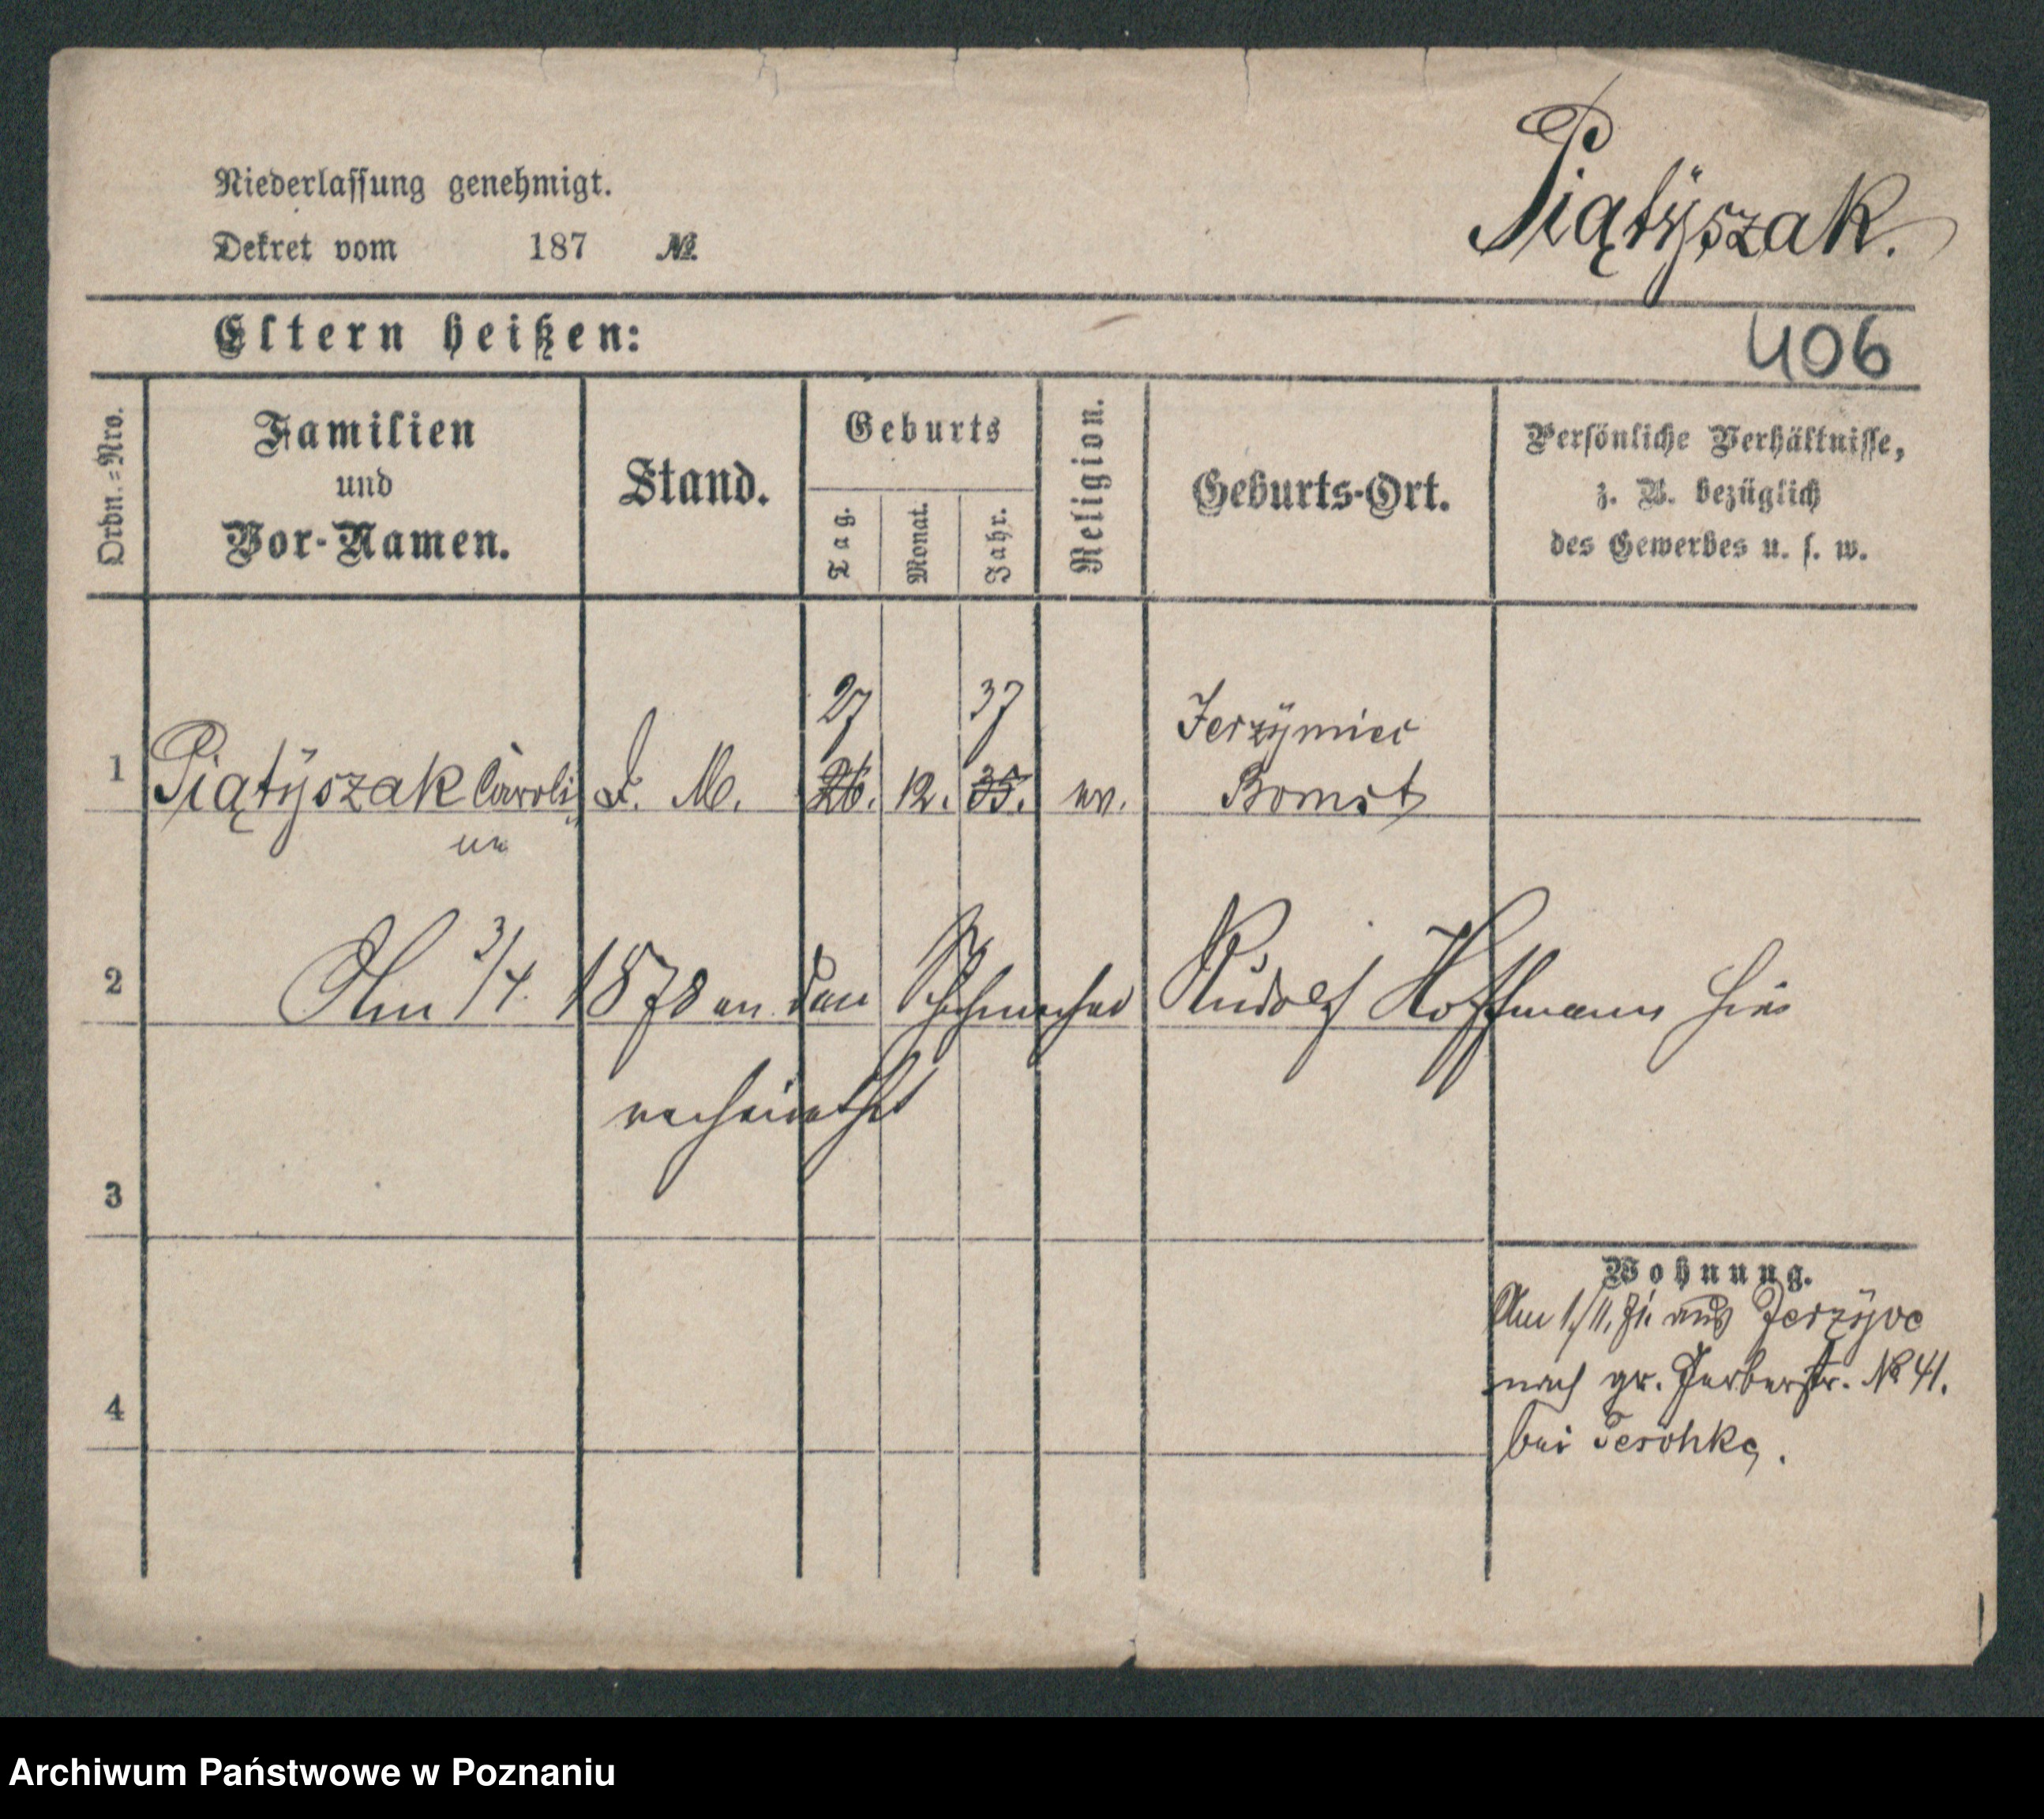 Niederlassung genehmigt.
Dekret vom 187 №
Piątÿszak.
Eltern heißen:
406
Ordn.=Nro.
Familien
und
Vor-Namen.
Stand.
Geburts
Tag.
Monat.
Jahr.
Religion.
Geburts-Ort.
Persönliche Verhältnisse,
z. B. bezüglich
des Gewerbes u. s. w.
27 37 Jerzÿmier
1 Piątÿszak Caroli D. M. 26. 12. 35. ev. Bomst
ne
2 Am 3/4. 1878 an den Schuhmacher Rudolf Hoffmann hier
verheirathet
3
Wohnung.
Am 1./11. 71. aus Jerzÿce
nach gr. Gerberstr. № 41.
4
bei Teschke.
Archiwum Państwowe w Poznaniu